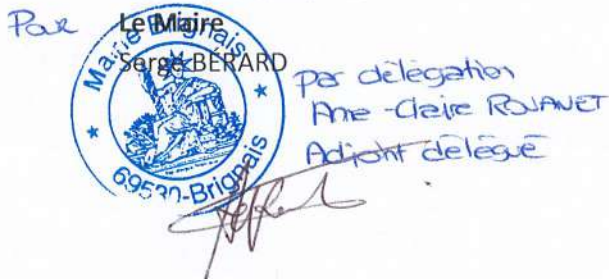 Pour Le Maire
Serge BÉRARD
Mairie Brignais
69530-Brignais
par délégation
Anne-Claire ROUANET
Adjoint délégué